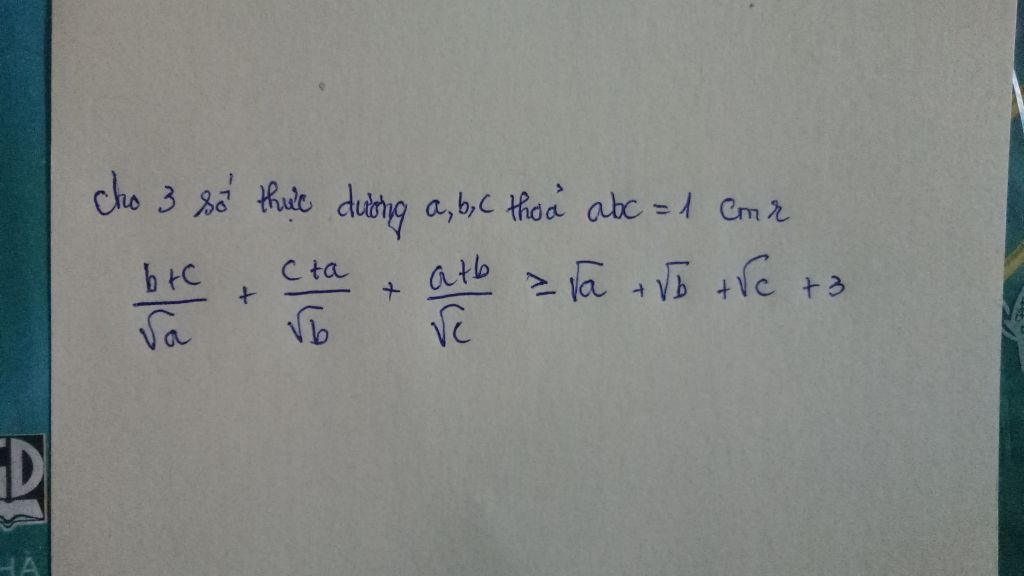 cho 3 số thực dương a,b,c thoả abc = 1 cmr
b+c/√a + c+a/√b + a+b/√c ≥ √a + √b + √c + 3
GD
HA